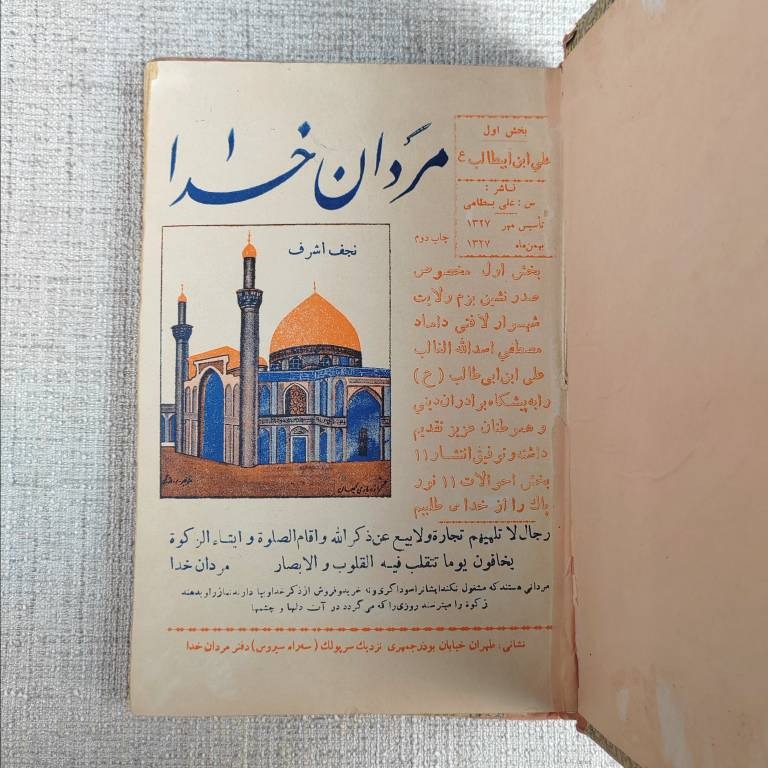 مردان خدا
بخش اول
علی ابن ابیطالب ع
ناشر :
س : علی بسطامی
تأسیس مهر ۱۳۲۷
بهمن ماه ۱۳۲۷
چاپ دوم
نجف اشرف
بخش اول مخصوص
صدر نشین بزم ولایت
شهسوار لافتی داماد
مصطفی اسدالله الغالب
علی ابن ابی طالب (ع)
را به پیشگاه برادران دینی
و هموطنان عزیز تقدیم
داشته و توفیق انتشار ۱۱
بخش احوالات ۱۱ نور
پاک را از خدا می طلبیم
رجال لا تلهیهم تجارة ولابیع عن ذکر الله و اقام الصلوة و ایتاء الزکوة
یخافون یوما تتقلب فیه القلوب و الابصار مردان خدا
مردانی هستند که مشغول نکند ایشانرا سوداگری و نه خرید و فروش از ذکر خدا و بپا دارند نماز را و بدهند
زکوة را میترسند روزی را که می گردد در آن دلها و چشمها
نشانی : طهران خیابان بوذرجمهری نزدیک سرپولک (سه راه سیروس) دفتر مردان خدا